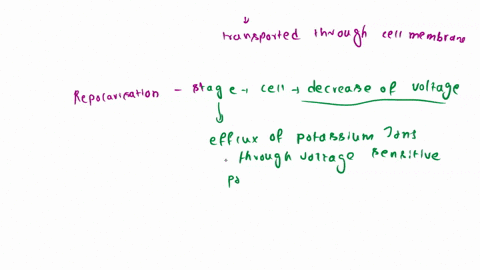 transported through cell membrane
Repolarisation - stage → cell → decrease of voltage
efflux of potassium Ions
through voltage sensitive
po